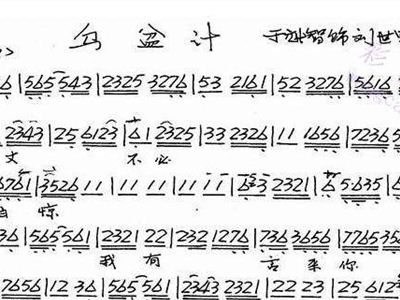 乌盆计 于魁智饰刘世
6 | 565 543 | 2325 3276 | 53 2161 | 52 3276 | 5616
2343 | 25 6123 | 61 2325 | 33 2326 | 11 1656 | 72365
文 不必
6761 | 3526 11 | 11 11 | 11 11 | 2321 | 6 5635 |
惊
36 | 565 561 | 2321 22 | 232 1276 | 736 3656 | 7765 35
我有 言来你
7656 | 12 36 | 565 561 | 2343 2321 | 22 23 | 25 612